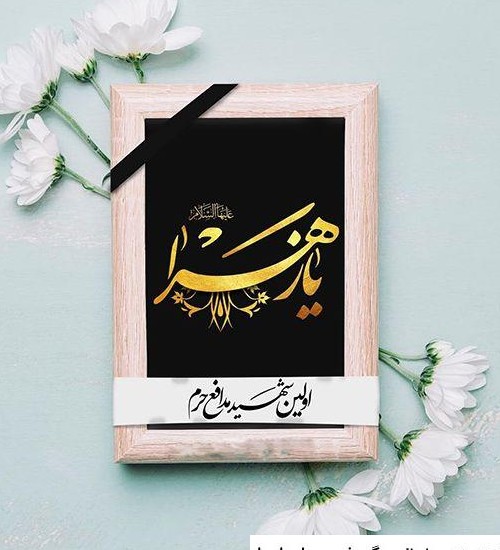 علیها السلام
یا زهرا
اولین شهید مدافع حرم